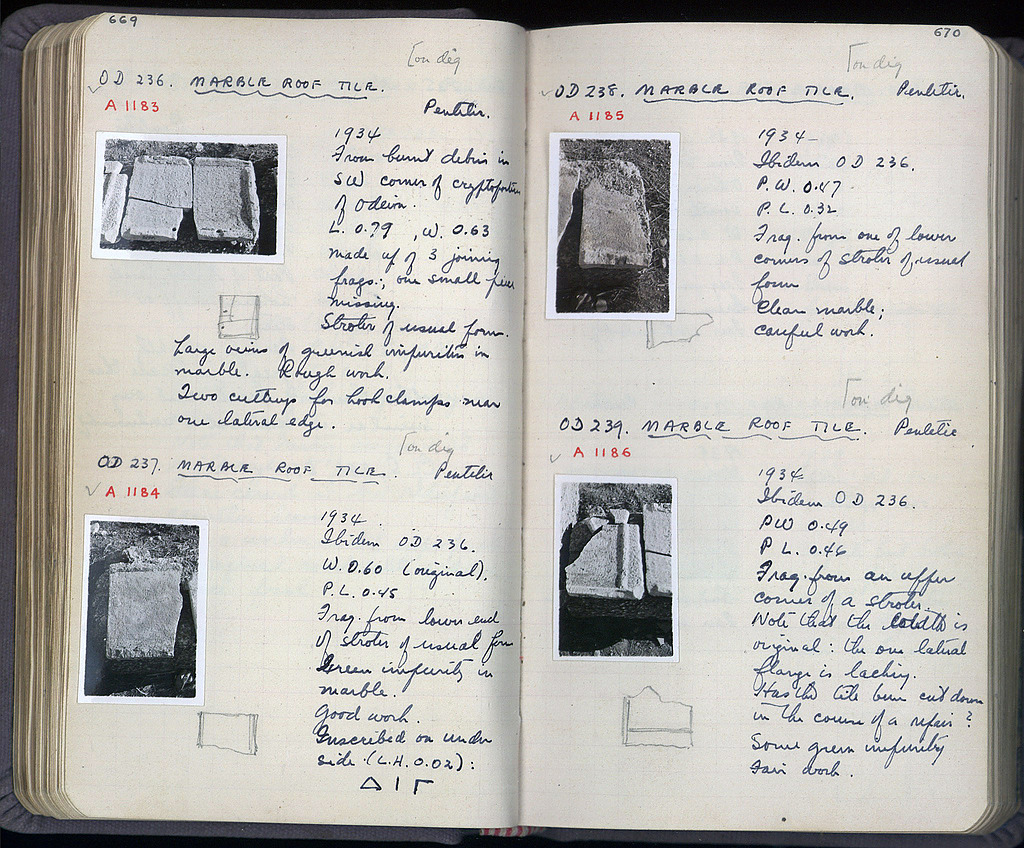 669
[on dig
OD 236. MARBLE ROOF TILE.
A 1183
Pentelic.
1934
From burnt debris in
SW corner of cryptoporticus
of Odeion.
L. 0.79 , W. 0.63
Made up of 3 joining
frags.; one small piece
missing.
Stroter of usual form.
Large veins of greenish impurities in
marble. Rough work.
Two cuttings for hook clamps near
one lateral edge.
[on dig
OD 237. MARBLE ROOF TILE. Pentelic
A 1184
1934.
Ibidem OD 236.
W. 0.60 (original).
P.L. 0.45
Frag. from lower end
of stroter of usual form
Green impurity in
marble.
Good work.
Inscribed on under
side (L.H. 0.02):
Δ Ι Γ
670
[on dig
OD 238. MARBLE ROOF TILE. Pentelic.
A 1185
1934
Ibidem OD 236.
P.W. 0.47
P.L. 0.32
Frag. from one of lower
corners of stroter of usual
form
Clean marble;
careful work.
[on dig
OD 239. MARBLE ROOF TILE. Pentelic
A 1186
1934
Ibidem OD 236.
PW 0.49
P L. 0.46
Frag. from an upper
corner of a stroter.
Note that the width is
original: the one lateral
flange is lacking.
Has the tile been cut down
in the course of a repair?
Some green impurity
Fair work.